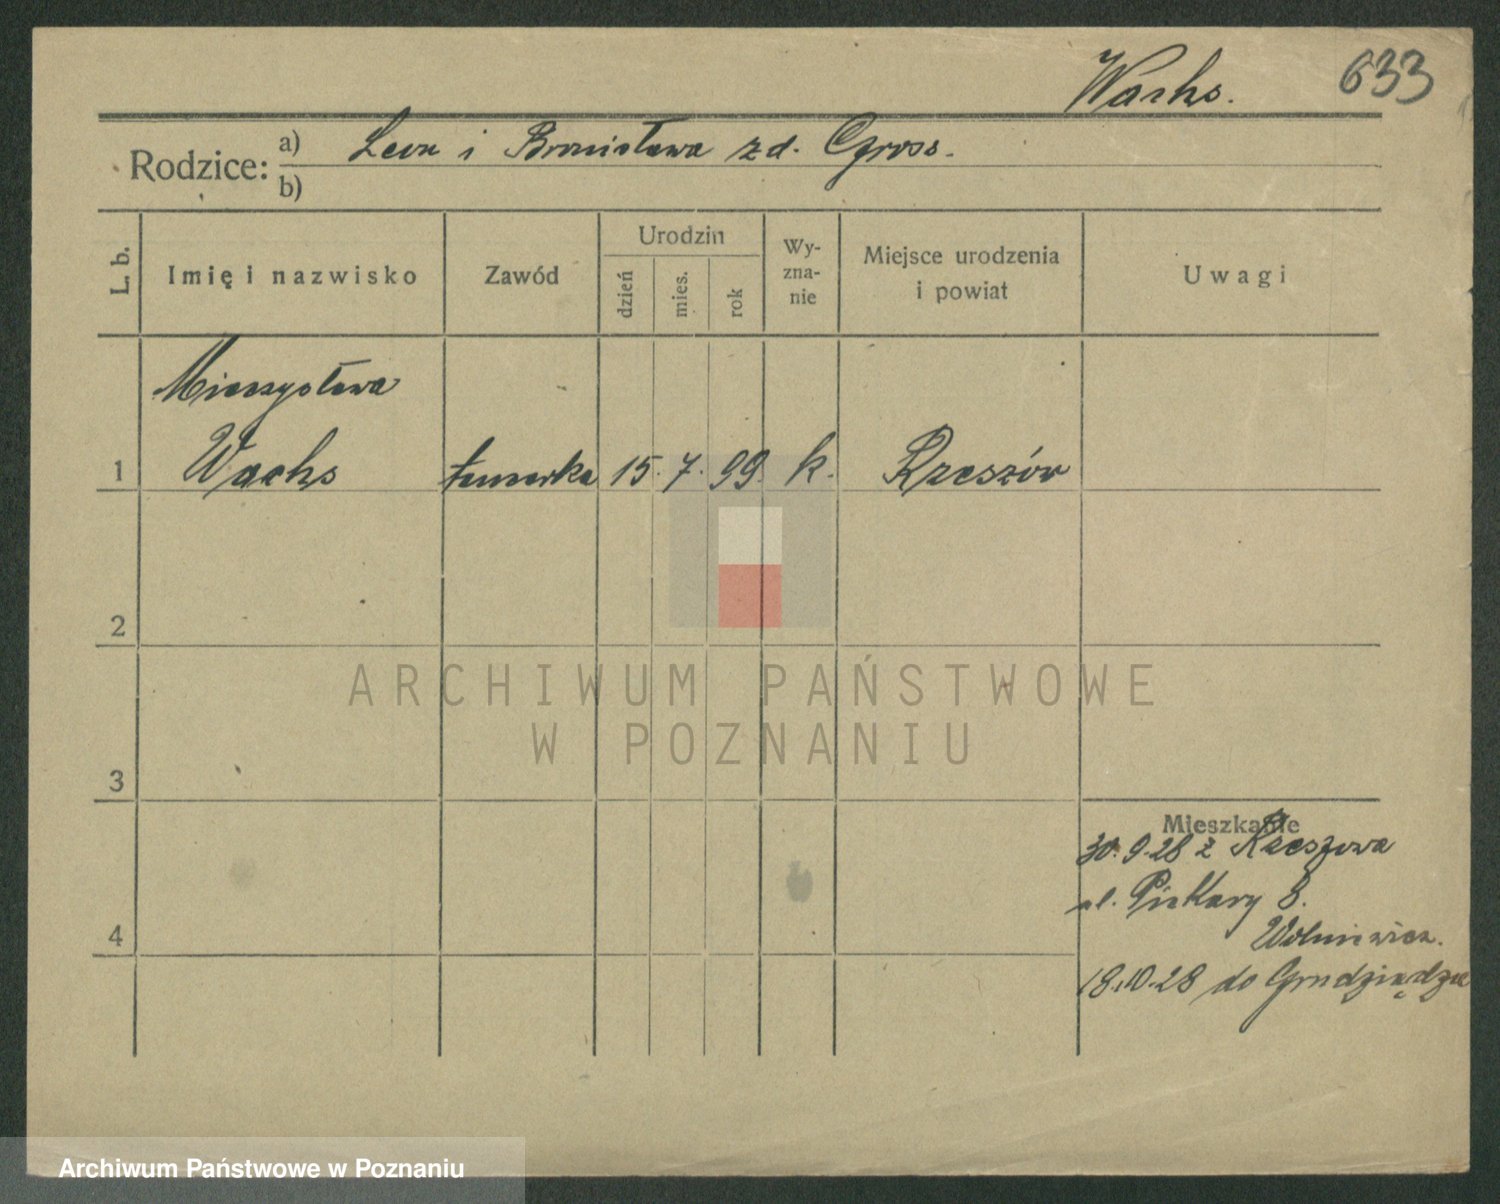 Wachs.
633
Rodzice:
a) Leon i Bronisława zd. Gross.
b)
L. b.
Imię i nazwisko
Zawód
Urodzin
dzień
mies.
rok
Wy-
zna-
nie
Miejsce urodzenia
i powiat
Uwagi
Mieczysława
1 Wachs 15. 7. 99. k. Rzeszów
2
3
4
Mieszkanie
30.9.28 z Rzeszowa
ul. Piekary 8.
18.10.28 do Grudziądza
ARCHIWUM PAŃSTWOWE
W POZNANIU
Archiwum Państwowe w Poznaniu